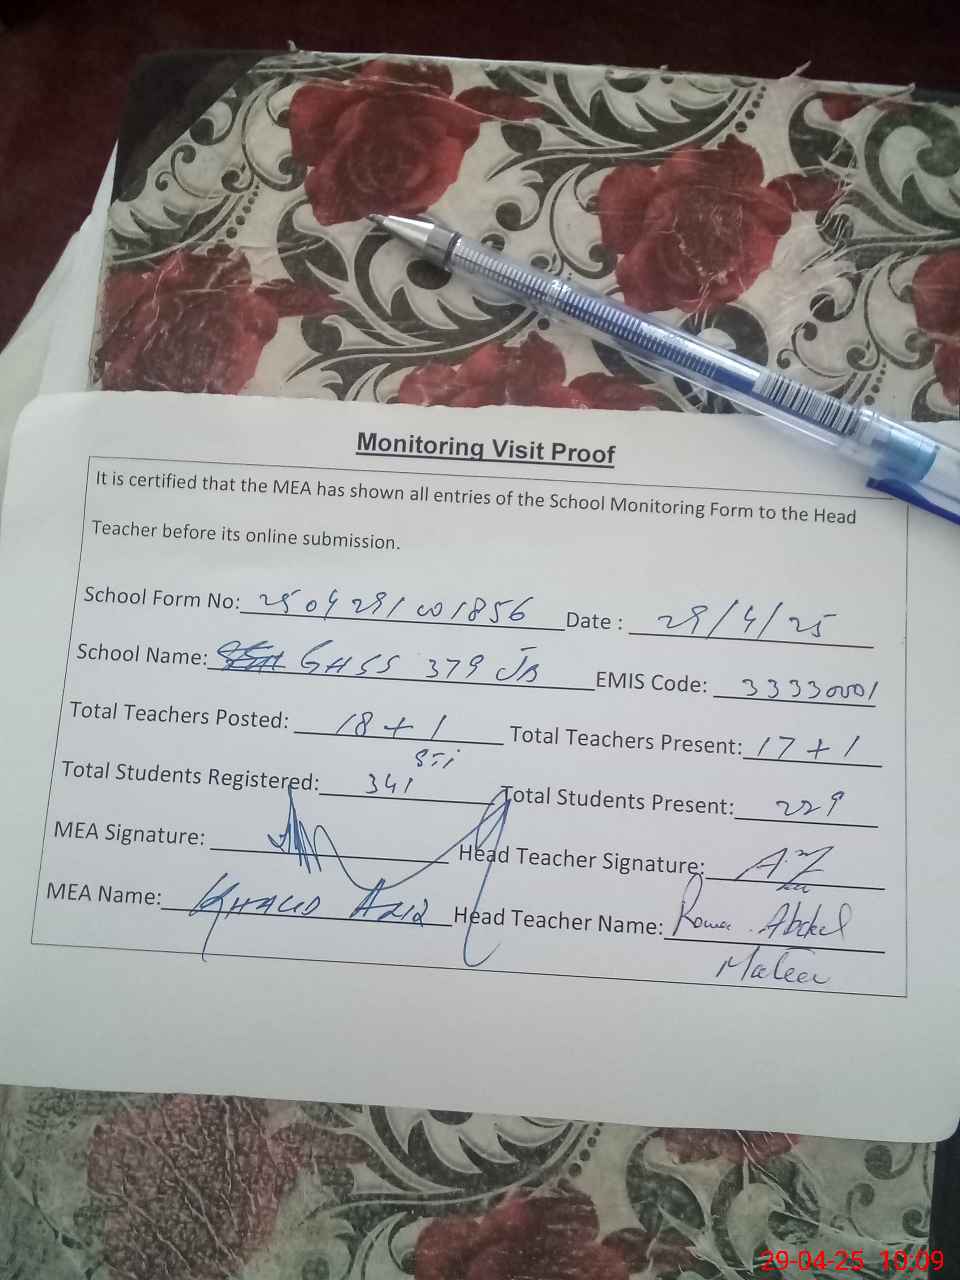 Monitoring Visit Proof
It is certified that the MEA has shown all entries of the School Monitoring Form to the Head
Teacher before its online submission.
School Form No: 250429100 1856 Date : 29/4/25
School Name: GHSS 379 JB EMIS Code: 33330001
Total Teachers Posted: 18 + 1 Total Teachers Present: 17 + 1
STI
Total Students Registered: 341 Total Students Present: 229
MEA Signature: Head Teacher Signature:
MEA Name: KHALID AZIZ Head Teacher Name: Rana Abdul
Mateen
29-04-25 10:09